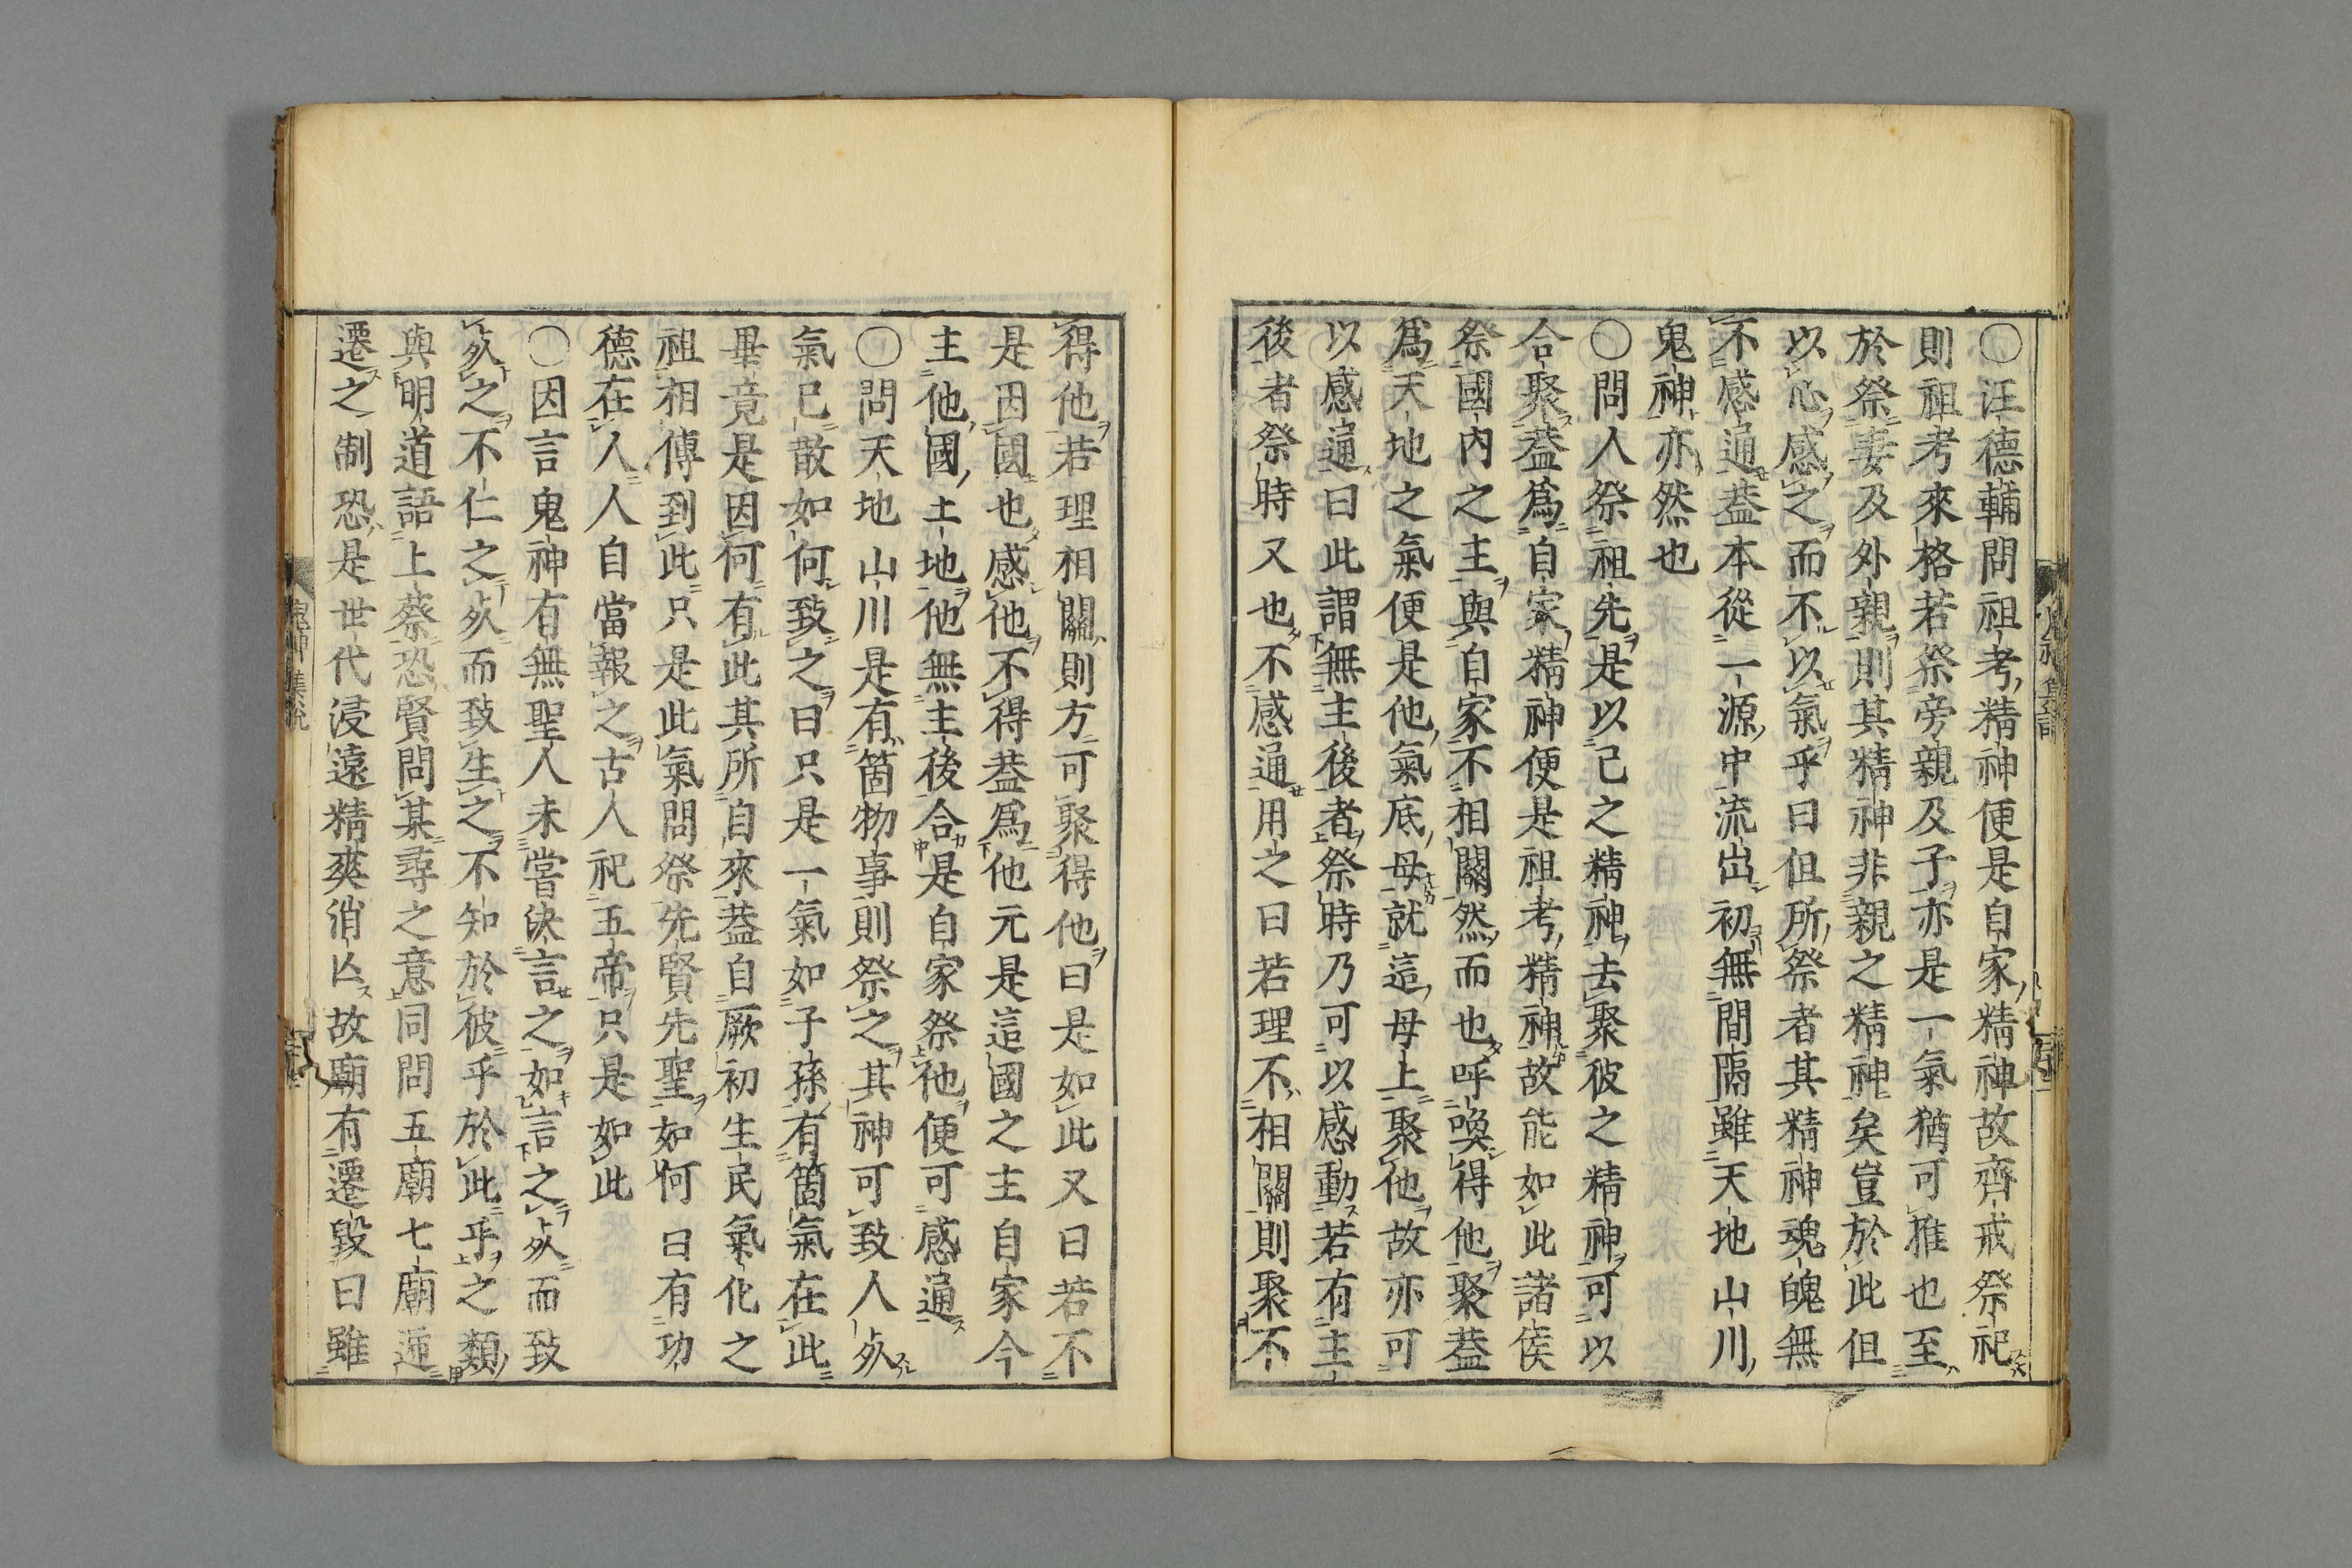 〇汪德輔問祖考精神便是自家精神故齊戒祭祀
則祖考來格若祭旁親及子亦是一氣猶可推也至
於祭妻及外親則其精神非親之精神矣豈於此但
以心感之而不以氣乎曰但所祭者其精神魂魄無
不感通蓋本從一源中流出初無間隔雖天地山川
鬼神亦然也
〇問人祭祖先是以己之精神去聚彼之精神可以
合聚蓋爲自家精神便是祖考精神故能如此諸侯
祭國內之主與自家不相關然而也呼喚得他聚蓋
爲天地之氣便是他氣底母就這母上聚他故亦可
以感通曰此謂無主後者祭時乃可以感動若有主
後者祭時又也不感通用之曰若理不相關則聚不
得他若理相關則方可聚得他曰是如此又曰若不
是因國也感他不得蓋爲他元是這國之主自家今
主他國土地他無主後合是自家祭他便可感通
〇問天地山川是有箇物事則祭之其神可致人死
氣已散如何致之曰只是一氣如子孫有箇氣在此
畢竟是因何有此其所自來蓋自厥初生民氣化之
祖相傳到此只是此氣問祭先賢先聖如何曰有功
德在人人自當報之古人祀五帝只是如此
〇因言鬼神有無聖人未嘗决言之如言之死而致
死之不仁之死而致生之不知於彼乎於此乎之類
與明道語上蔡恐賢問某尋之意同問五廟七廟遞
遷之制恐是世代浸遠精爽消亾故廟有遷毀曰雖
鬼神集説